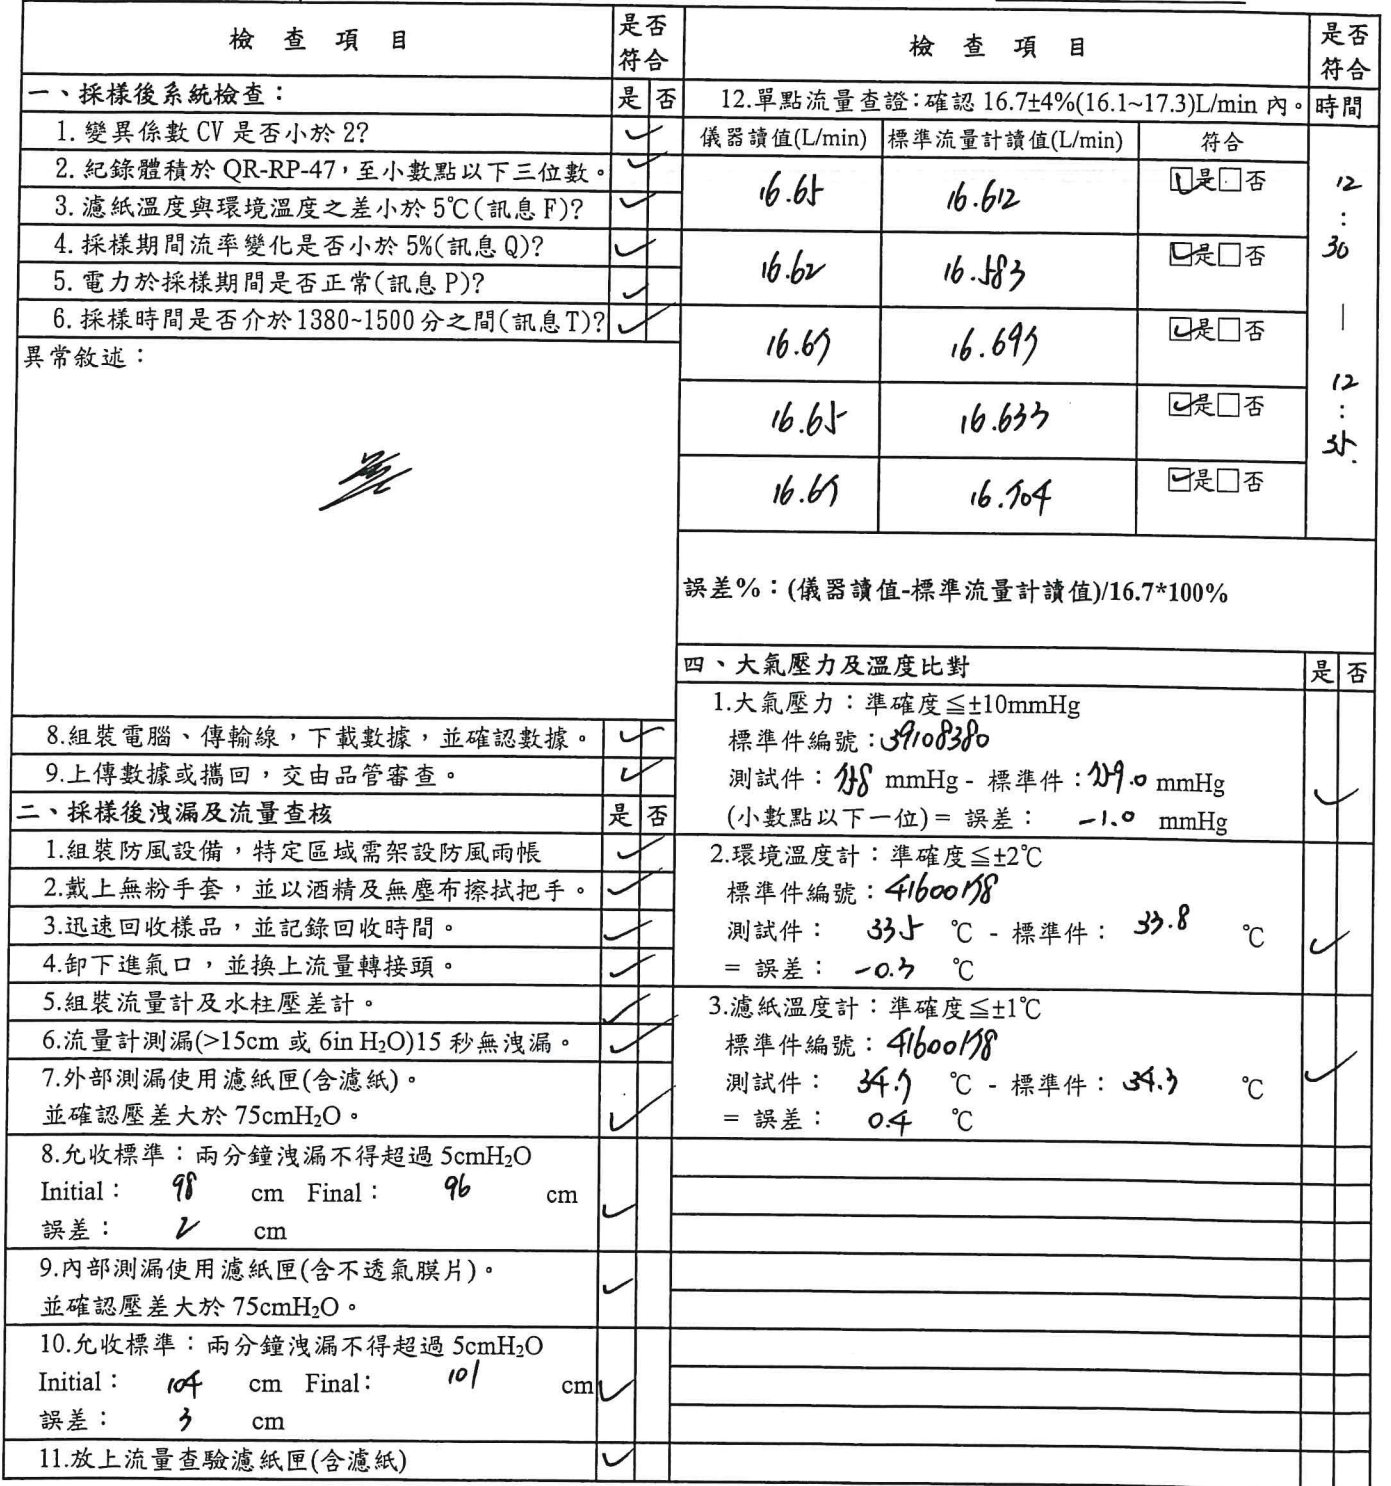 檢 查 項 目
是否
符合
一、採樣後系統檢查：
是 否
1. 變異係數 CV 是否小於 2?
2. 紀錄體積於 QR-RP-47，至小數點以下三位數。
3. 濾紙溫度與環境溫度之差小於 5℃(訊息 F)?
4. 採樣期間流率變化是否小於 5%(訊息 Q)?
5. 電力於採樣期間是否正常(訊息 P)?
6. 採樣時間是否介於 1380~1500 分之間(訊息 T)?
異常敘述：
無
8.組裝電腦、傳輸線，下載數據，並確認數據。
9.上傳數據或攜回，交由品管審查。
二、採樣後洩漏及流量查核
是 否
1.組裝防風設備，特定區域需架設防風雨帳
2.戴上無粉手套，並以酒精及無塵布擦拭把手。
3.迅速回收樣品，並記錄回收時間。
4.卸下進氣口，並換上流量轉接頭。
5.組裝流量計及水柱壓差計。
6.流量計測漏(>15cm 或 6in H₂O)15 秒無洩漏。
7.外部測漏使用濾紙匣(含濾紙)。
並確認壓差大於 75cmH₂O。
8.允收標準：兩分鐘洩漏不得超過 5cmH₂O
Initial： 98 cm Final： 96 cm
誤差： 2 cm
9.內部測漏使用濾紙匣(含不透氣膜片)。
並確認壓差大於 75cmH₂O。
10.允收標準：兩分鐘洩漏不得超過 5cmH₂O
Initial： 104 cm Final： 101 cm
誤差： 3 cm
11.放上流量查驗濾紙匣(含濾紙)
檢 查 項 目
是否
符合
12.單點流量查證：確認 16.7±4%(16.1~17.3)L/min 內。
時間
儀器讀值(L/min) 標準流量計讀值(L/min) 符合
16.65 16.612 ☑是□否
16.62 16.583 ☑是□否
16.67 16.697 ☑是□否
16.65 16.633 ☑是□否
16.67 16.704 ☑是□否
12
:
30
|
12
:
35.
誤差%：(儀器讀值-標準流量計讀值)/16.7*100%
四、大氣壓力及溫度比對
是 否
1.大氣壓力：準確度≦±10mmHg
標準件編號：39108380
測試件：758 mmHg - 標準件：759.0 mmHg
(小數點以下一位) = 誤差： -1.0 mmHg
2.環境溫度計：準確度≦±2℃
標準件編號：41600178
測試件： 33.5 ℃ - 標準件： 33.8 ℃
= 誤差： -0.3 ℃
3.濾紙溫度計：準確度≦±1℃
標準件編號：41600178
測試件： 34.7 ℃ - 標準件： 34.3 ℃
= 誤差： 0.4 ℃